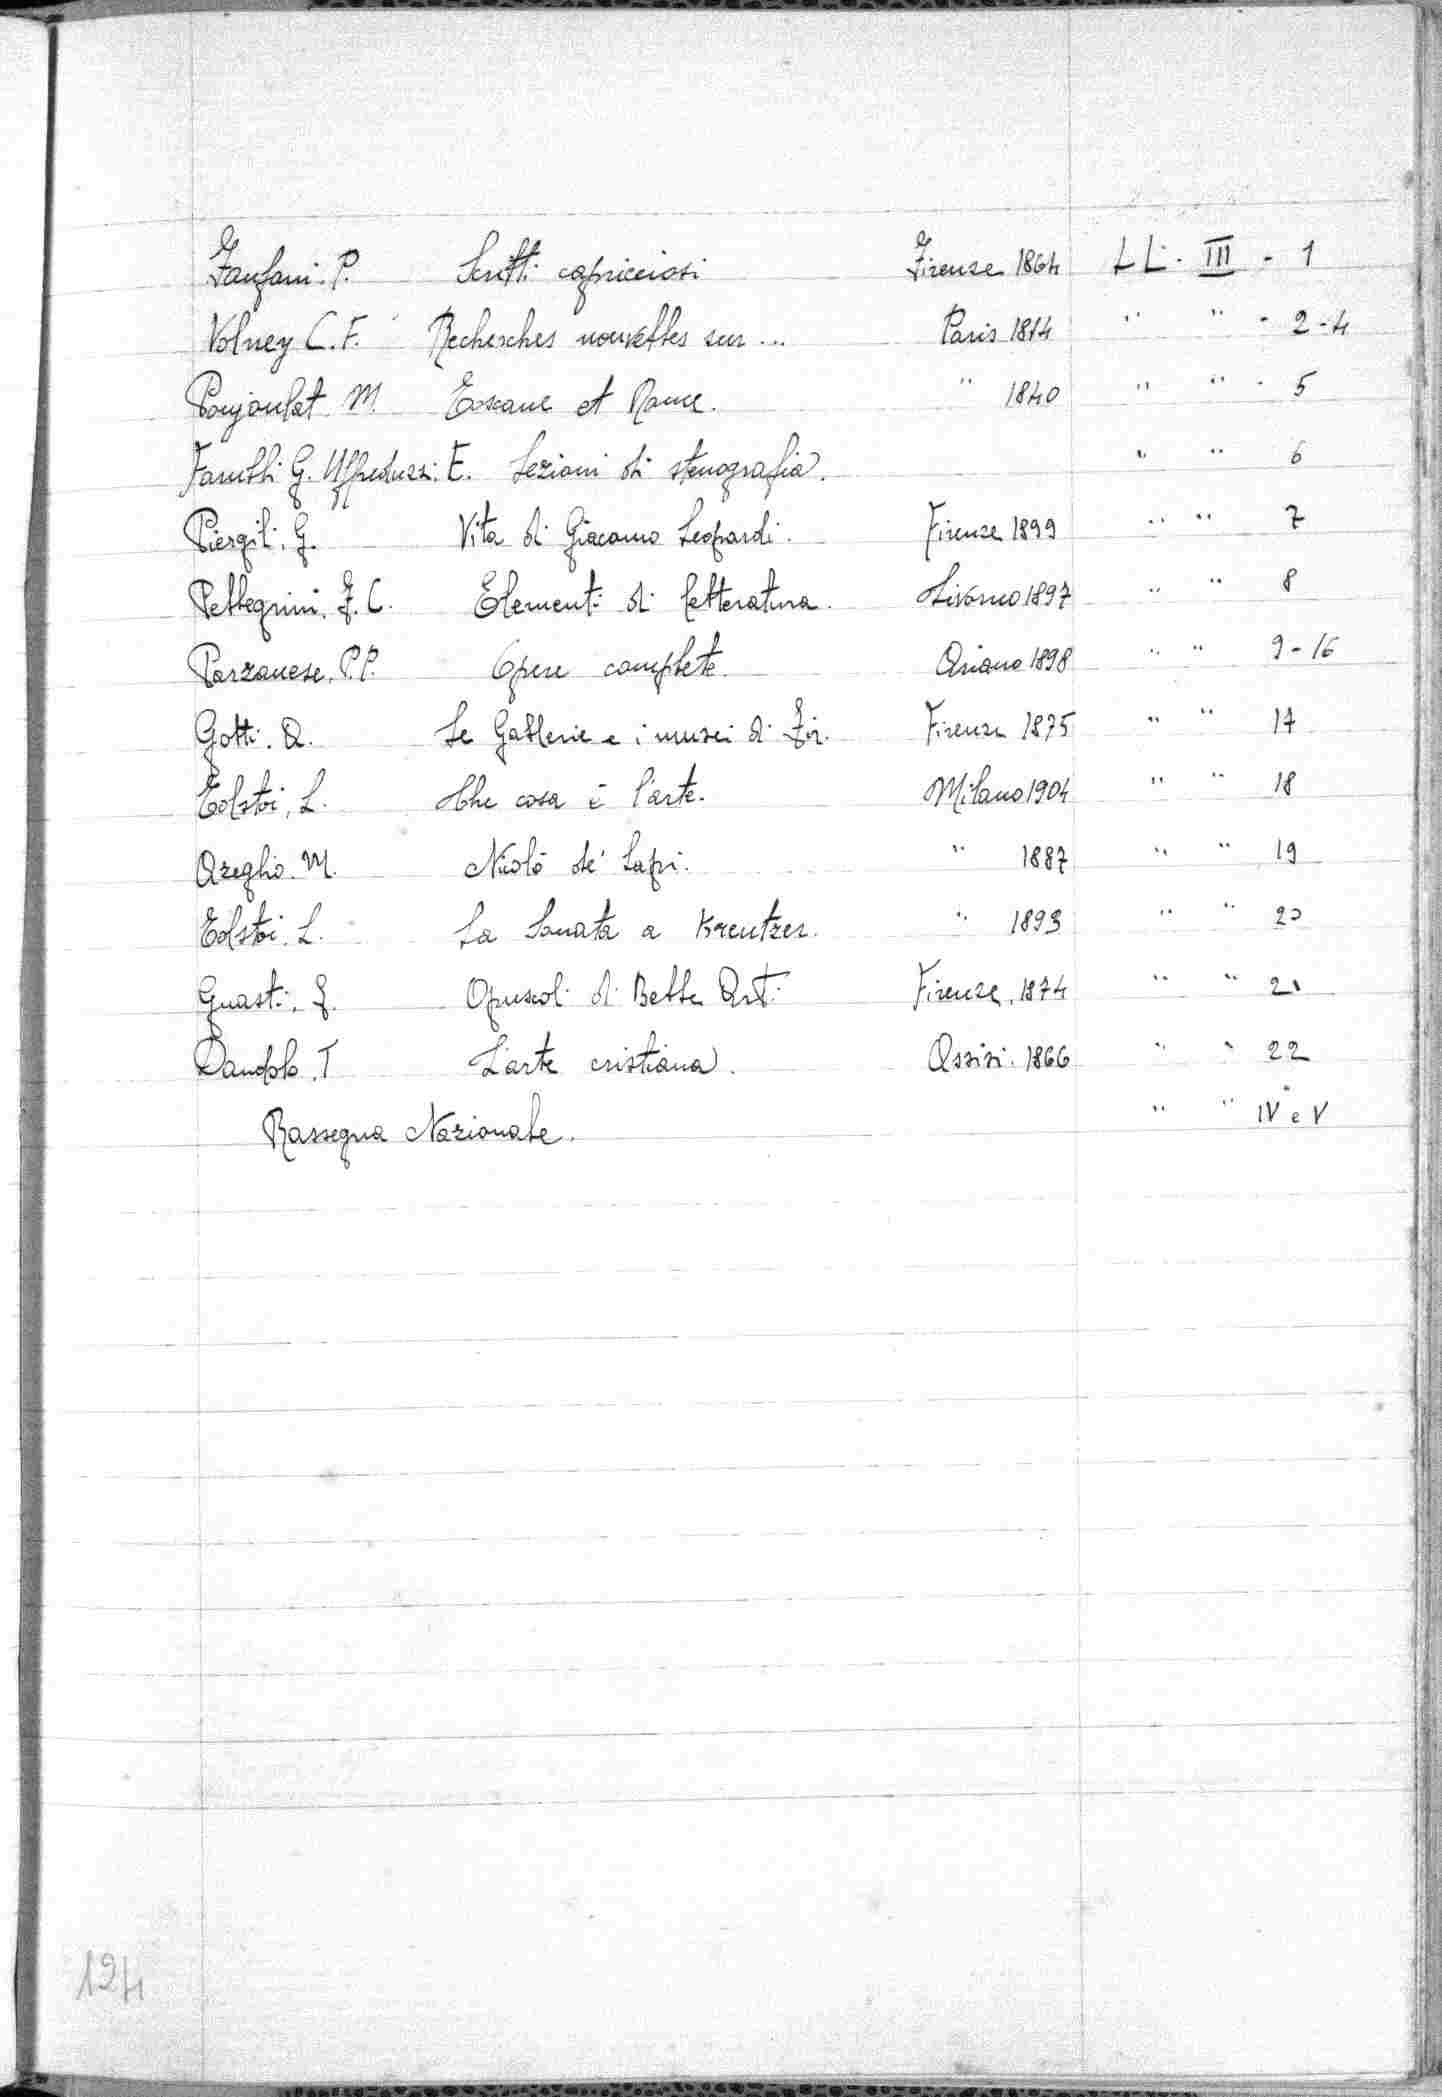 Fanfani. P. Scritti capricciosi Firenze 1864 LL. III - 1
Volney C. F. Recherches nouvelles sur ... Paris 1814 " " - 2-4
Poujoulat M. Toscane et Rome. " 1840 " " - 5
Fanelli G. Uffreduzzi. E. Lezioni di stenografia. " " 6
Piergili. G. Vita di Giacomo Leopardi. Firenze 1899 " " 7
Pellegrini. F. C. Elementi di letteratura. Livorno 1897 " " 8
Parzanese. P. P. Opere complete. Ariano 1898 " " 9-16
Gotti. A. Le Gallerie e i musei di Fir. Firenze 1875 " " 17
Tolstoi, L. Che cosa è l'arte. Milano 1904 " " 18
Azeglio. M. Nicolò de' Lapi. " 1887 " " 19
Tolstoi. L. La Sonata a Kreutzer. " 1893 " " 20
Guasti, G. Opuscoli di Belle Arti Firenze. 1874 " " 21
Dandolo. T L'arte cristiana. Assisi. 1866 " " 22
Rassegna Nazionale. " " IV e V
124